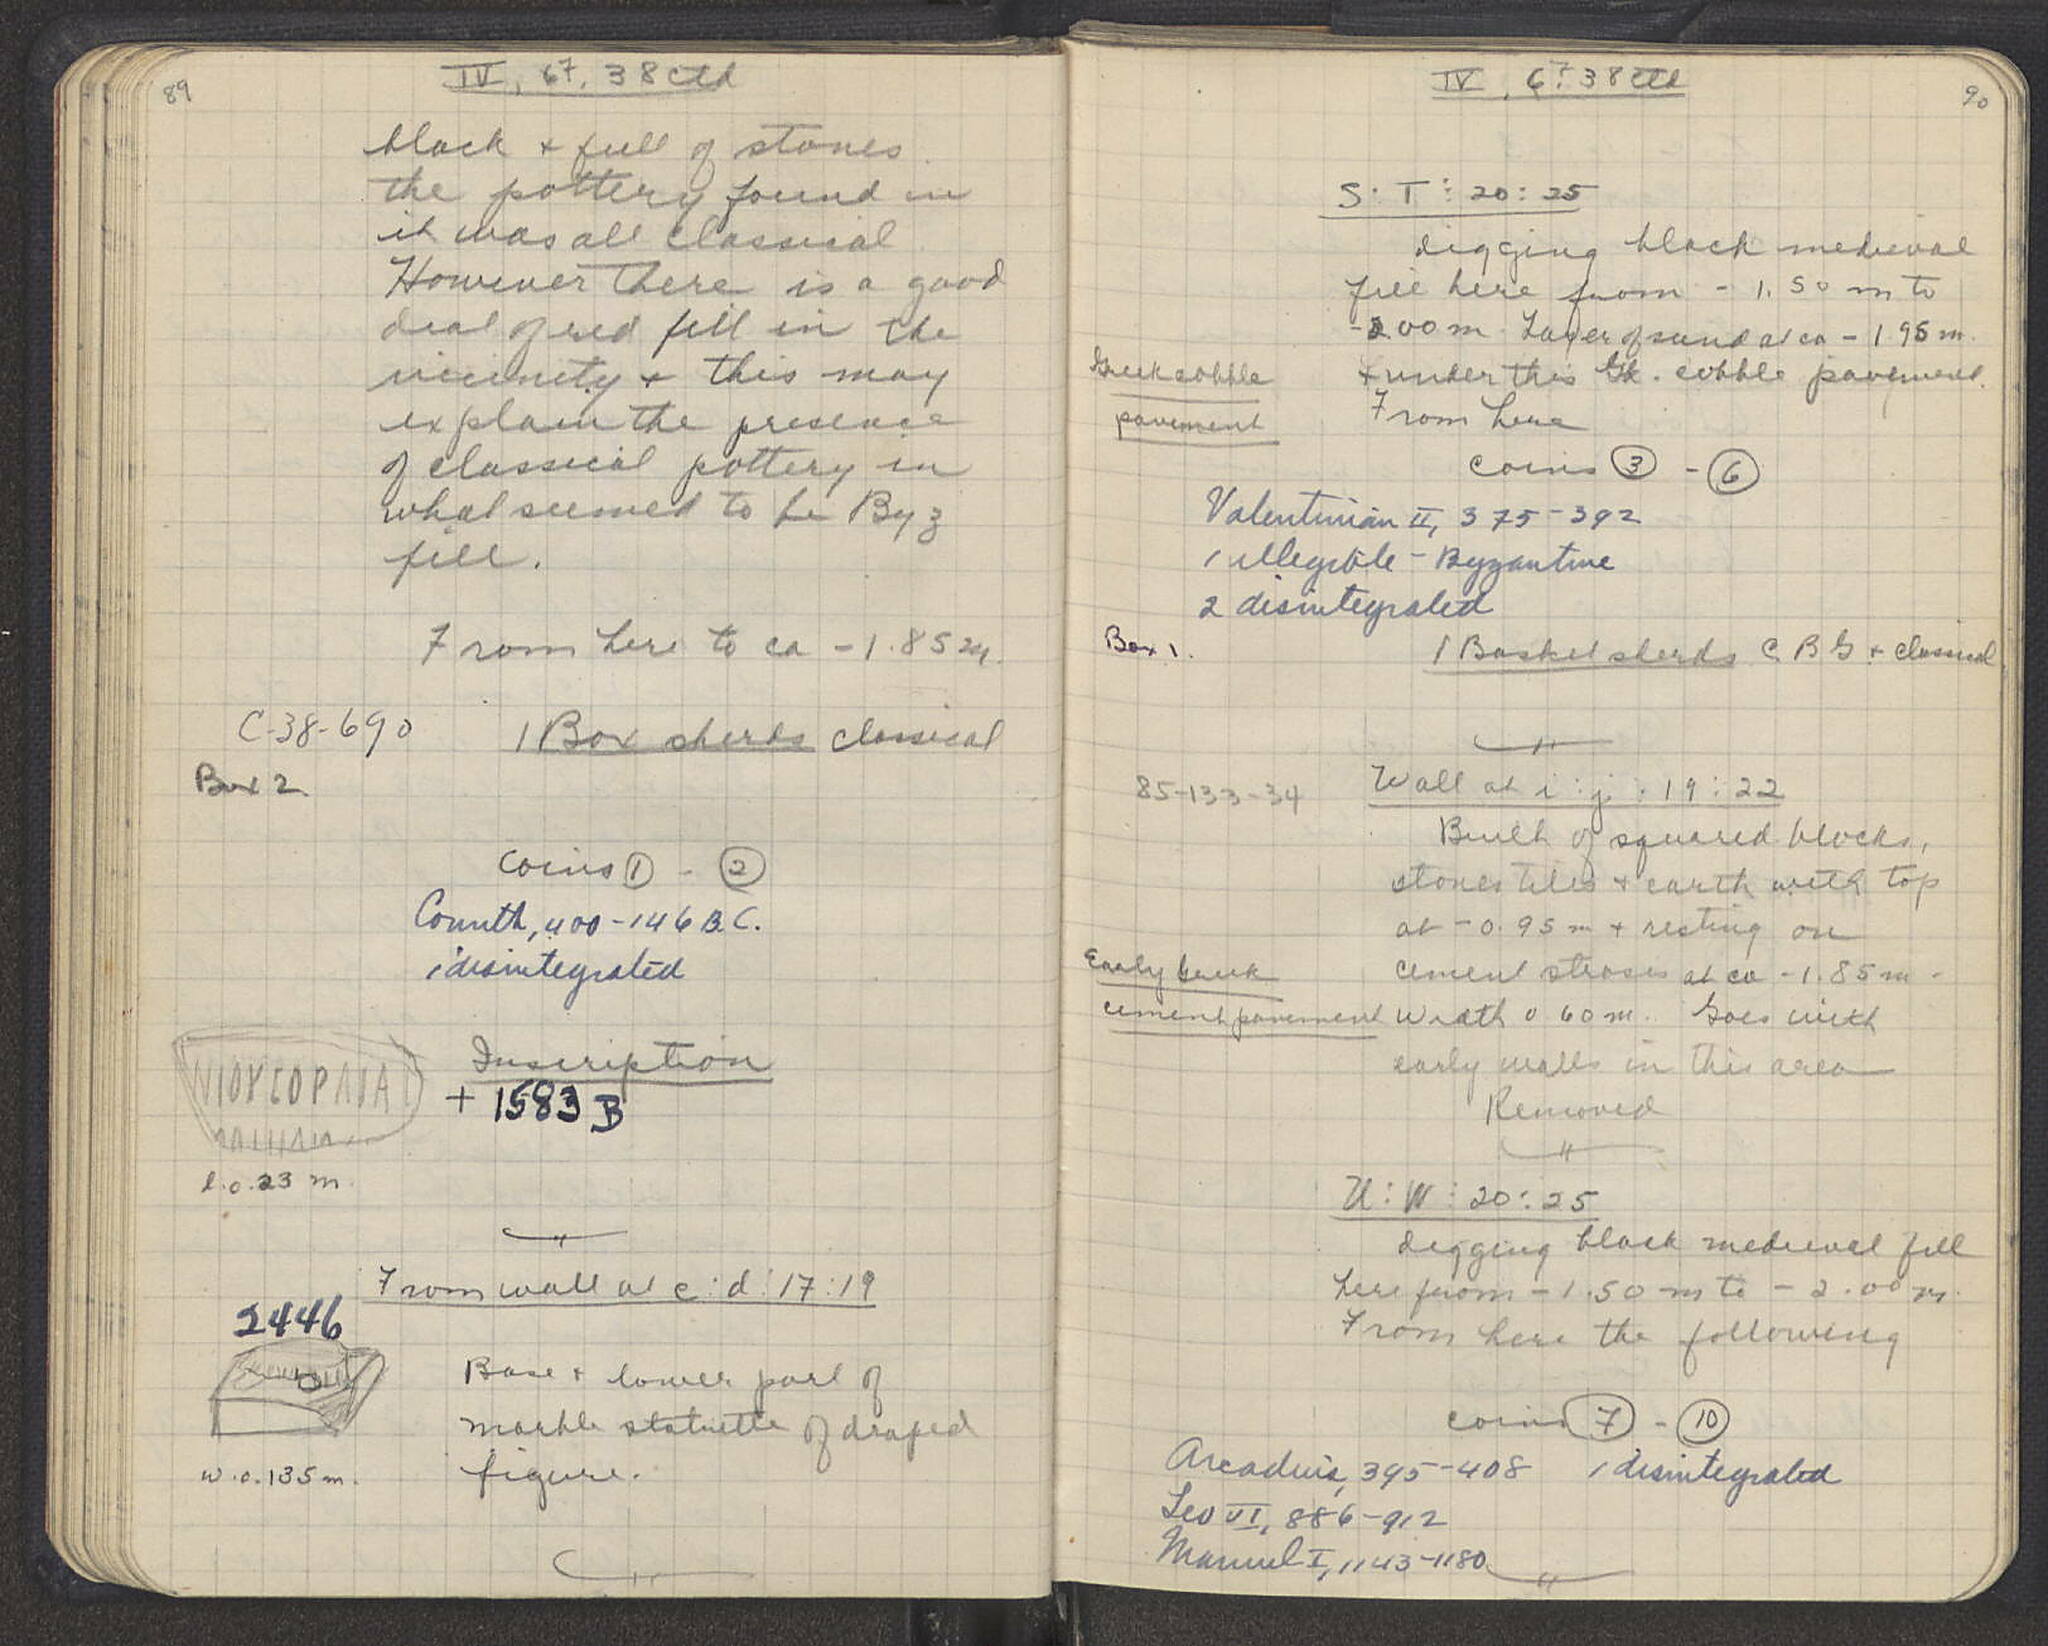 89
IV, 6⁷, 38 ctd
black + full of stones.
the pottery found in
it was all classical.
However there is a good
deal of red fill in the
vicinity + this may
explain the presence
of classical pottery in
what seemed to be Byz
fill.
From here to ca - 1.85 m.
C-38-690
1 Box sherds classical
Box 2.
coins ① - ②
Corinth, 400-146 B.C.
1 disintegrated
Inscription
+ 1583 B
l. 0.23 m.
From wall at c:d:17:19
2446
Base + lower part of
marble statuette of draped
figure.
w. 0.135 m.
90
IV, 6⁷. 38 ctd
S:T:20:25
digging black medieval
fill here from - 1.50 m to
-2.00 m. Layer of sand at ca - 1.95 m.
Greek cobble
pavement
+ under this Gk. cobble pavement.
From here
coins ③ - ⑥
Valentinian II, 375-392
1 illegible - Byzantine
2 disintegrated
Box 1.
1 Basket sherds C B G + classical
85-133-34
Wall at i:j:19:22
Built of squared blocks,
stones tiles + earth with top
at - 0.95 m + resting on
Early Greek
cement pavement
cement stroses at ca - 1.85 m.
Width 0.60 m. Goes with
early walls in this area
Removed
U:W:20:25
digging black medieval fill
here from - 1.50 m to - 2.00 m.
From here the following
coins ⑦ - ⑩
Arcadius, 395-408 1 disintegrated
Leo VI, 886-912
Manuel I, 1143-1180